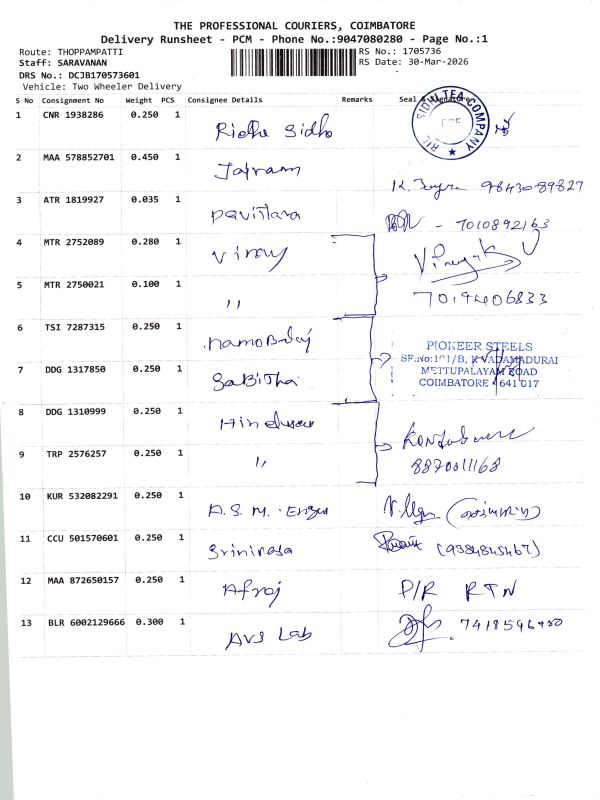 THE PROFESSIONAL COURIERS, COIMBATORE
Delivery Runsheet - PCM - Phone No.:9047080280 - Page No.:1
Route: THOPPAMPATTI RS No.: 1705736
Staff: SARAVANAN RS Date: 30-Mar-2026
DRS No.: DCJB170573601
Vehicle: Two Wheeler Delivery
S No Consignment No Weight PCS Consignee Details Remarks Seal & Signature
SIDHI TEA COMPANY
1 CNR 1938286 0.250 1 Ridhe Sidho
2 MAA 578852701 0.450 1 Jairam
K. 98430 89827
3 ATR 1819927 0.035 1 Pavithara
- 7010892163
4 MTR 2752089 0.280 1 Vinay
5 MTR 2750021 0.100 1 ,,
7019406833
6 TSI 7287315 0.250 1
PIONEER STEELS
SF.No:191/B, K.VADAMADURAI
7 DDG 1317850 0.250 1 SaBiTha
METTUPALAYAM ROAD
COIMBATORE - 641 017
8 DDG 1310999 0.250 1
9 TRP 2576257 0.250 1 ,,
8870011168
10 KUR 532082291 0.250 1 A.S.M. Engg
11 CCU 501570601 0.250 1 Srinivasa (9384845467)
12 MAA 872650157 0.250 1 Afroj P/R RTN
13 BLR 6002129666 0.300 1 Avs Lab